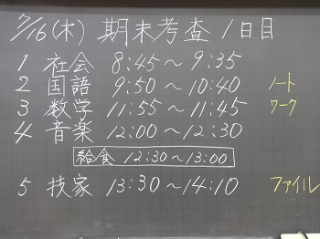 7/16(木) 期末考査 1日目
1 社会 8:45～9:35
2 国語 9:50～10:40 ノート
3 数学 11:55～11:45 ワーク
4 音楽 12:00～12:30
給食 12:30～13:00
5 技家 13:30～14:10 ファイル